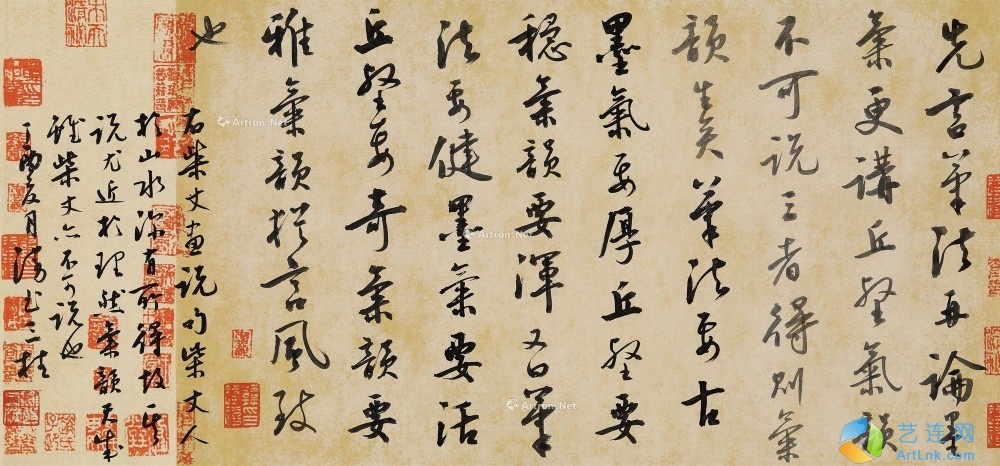 先言筆法再論墨
氣更講丘壑氣韻
不可说三者得則氣
韻生矣筆法要古
墨氣要厚丘壑要
穩氣韻要渾又曰筆
法要健墨氣要活
丘壑要奇氣韻要
雅氣韻猶言風致
也
右柴丈画说句柴丈人
於山水深有所得故其
说尤近於理然氣韻天成
雖柴丈亦不可说也
丁酉夏月
Artron.Net
Artron.Net
Artron.Net
艺连网
ArtLnk.com